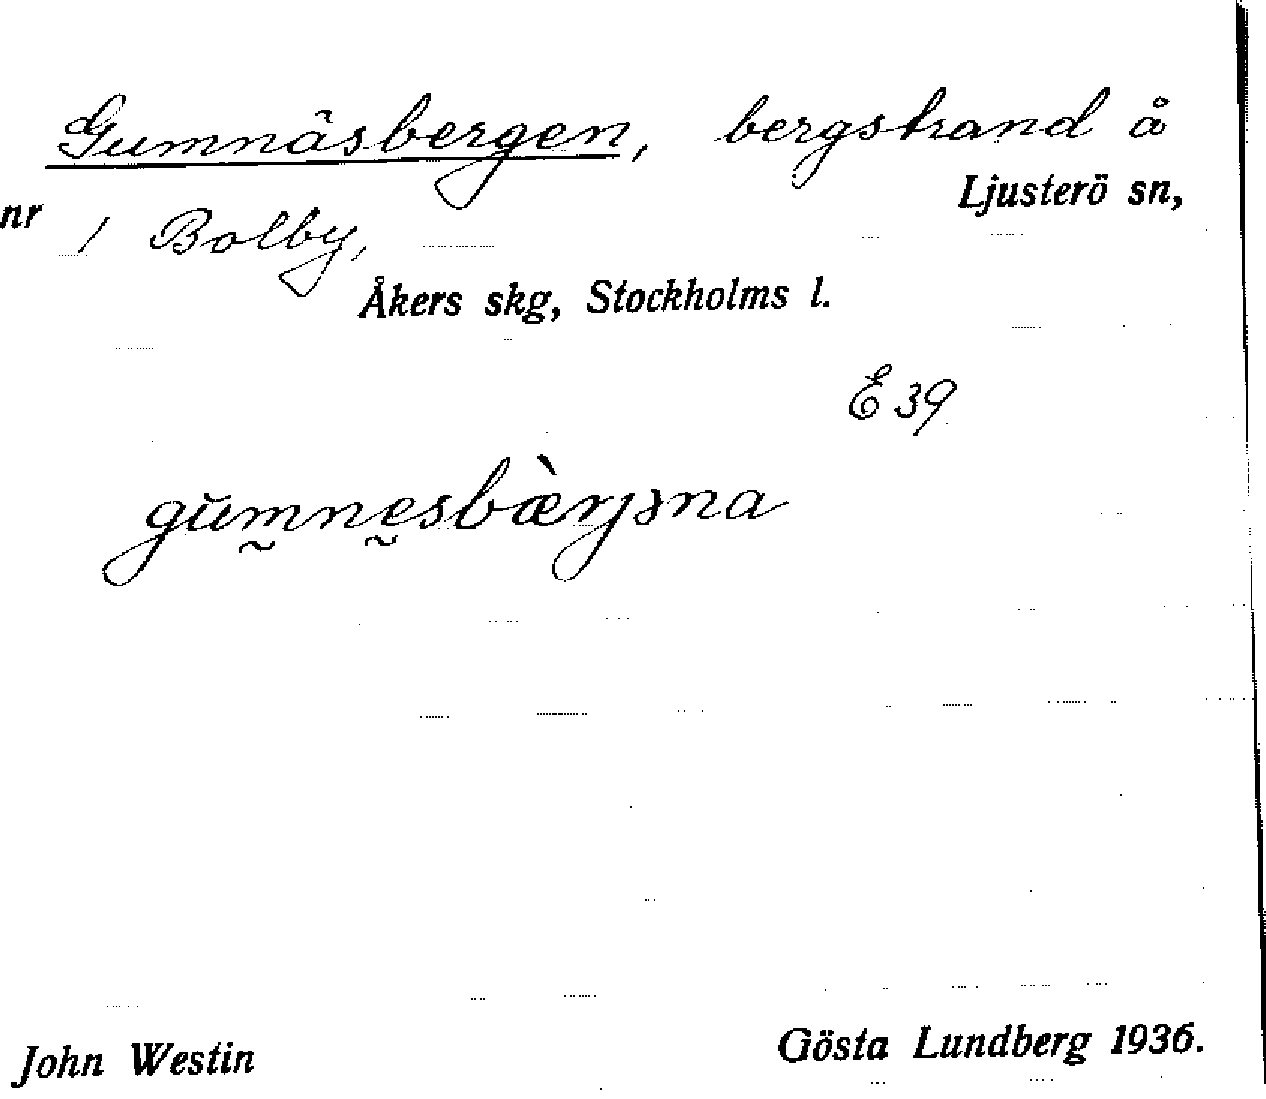 Gumnäsbergen, bergstrand å
Ljusterö sn,
nr 1 Bolby,
Åkers skg, Stockholms l.
E 39
gŭm̰nḛsbæ̀rjəna
John Westin
Gösta Lundberg 1936.